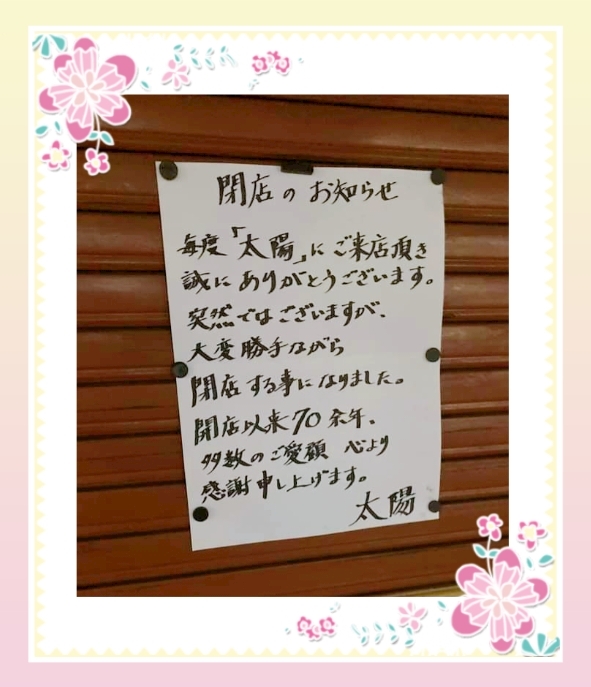 閉店のお知らせ
毎度「太陽」にご来店頂き
誠にありがとうございます。
突然ではございますが、
大変勝手ながら
閉店する事になりました。
開店以来70余年、
多数のご愛顧 心より
感謝申し上げます。
太陽